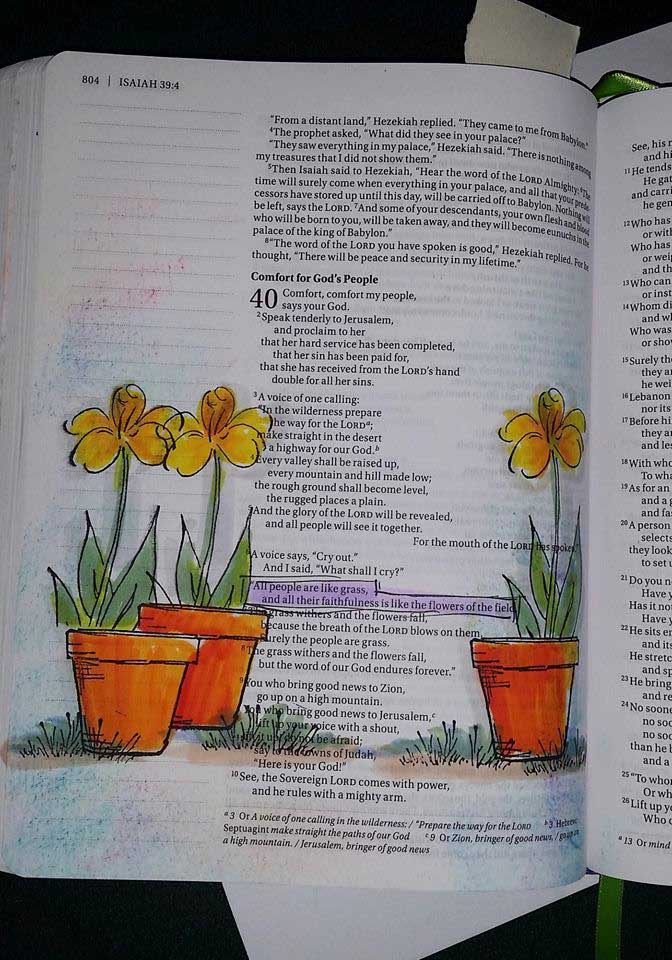 804 | ISAIAH 39:4
"From a distant land," Hezekiah replied. "They came to me from Babylon."
4The prophet asked, "What did they see in your palace?"
"They saw everything in my palace," Hezekiah said. "There is nothing among
my treasures that I did not show them."
5Then Isaiah said to Hezekiah, "Hear the word of the LORD Almighty: 6The
time will surely come when everything in your palace, and all that your prede-
cessors have stored up until this day, will be carried off to Babylon. Nothing will
be left, says the LORD. 7And some of your descendants, your own flesh and blood
who will be born to you, will be taken away, and they will become eunuchs in the
palace of the king of Babylon."
8"The word of the LORD you have spoken is good," Hezekiah replied. For he
thought, "There will be peace and security in my lifetime."
Comfort for God's People
40 Comfort, comfort my people,
says your God.
2Speak tenderly to Jerusalem,
and proclaim to her
that her hard service has been completed,
that her sin has been paid for,
that she has received from the LORD's hand
double for all her sins.
3A voice of one calling:
"In the wilderness prepare
the way for the LORDa;
make straight in the desert
a highway for our God.b
4Every valley shall be raised up,
every mountain and hill made low;
the rough ground shall become level,
the rugged places a plain.
5And the glory of the LORD will be revealed,
and all people will see it together.
For the mouth of the LORD has spoken."
6A voice says, "Cry out."
And I said, "What shall I cry?"
"All people are like grass,
and all their faithfulness is like the flowers of the field.
7The grass withers and the flowers fall,
because the breath of the LORD blows on them.
Surely the people are grass.
8The grass withers and the flowers fall,
but the word of our God endures forever."
9You who bring good news to Zion,
go up on a high mountain.
You who bring good news to Jerusalem,c
lift up your voice with a shout,
lift it up, do not be afraid;
say to the towns of Judah,
"Here is your God!"
10See, the Sovereign LORD comes with power,
and he rules with a mighty arm.
a 3 Or A voice of one calling in the wilderness: / "Prepare the way for the LORD b 3 Hebrew;
Septuagint make straight the paths of our God c 9 Or Zion, bringer of good news, / go up on
a high mountain. / Jerusalem, bringer of good news
See, his
and hi
11He tends
He gat
and carri
he gen
12Who has
or with
Who has
or weig
and th
13Who can
or inst
14Whom di
and wh
Who was
or show
15Surely the
they a
he wei
16Lebanon
nor its
17Before hi
they ar
and les
18With who
To wha
19As for an
and a g
and fas
20A person
selects
they look
to set u
21Do you n
Have y
Has it no
Have y
22He sits e
and its
He stretc
and sp
23He bring
and re
24No soone
no soo
no soo
than he b
and a
25"To who
Or wh
26Lift up yo
Who c
a 13 Or mind